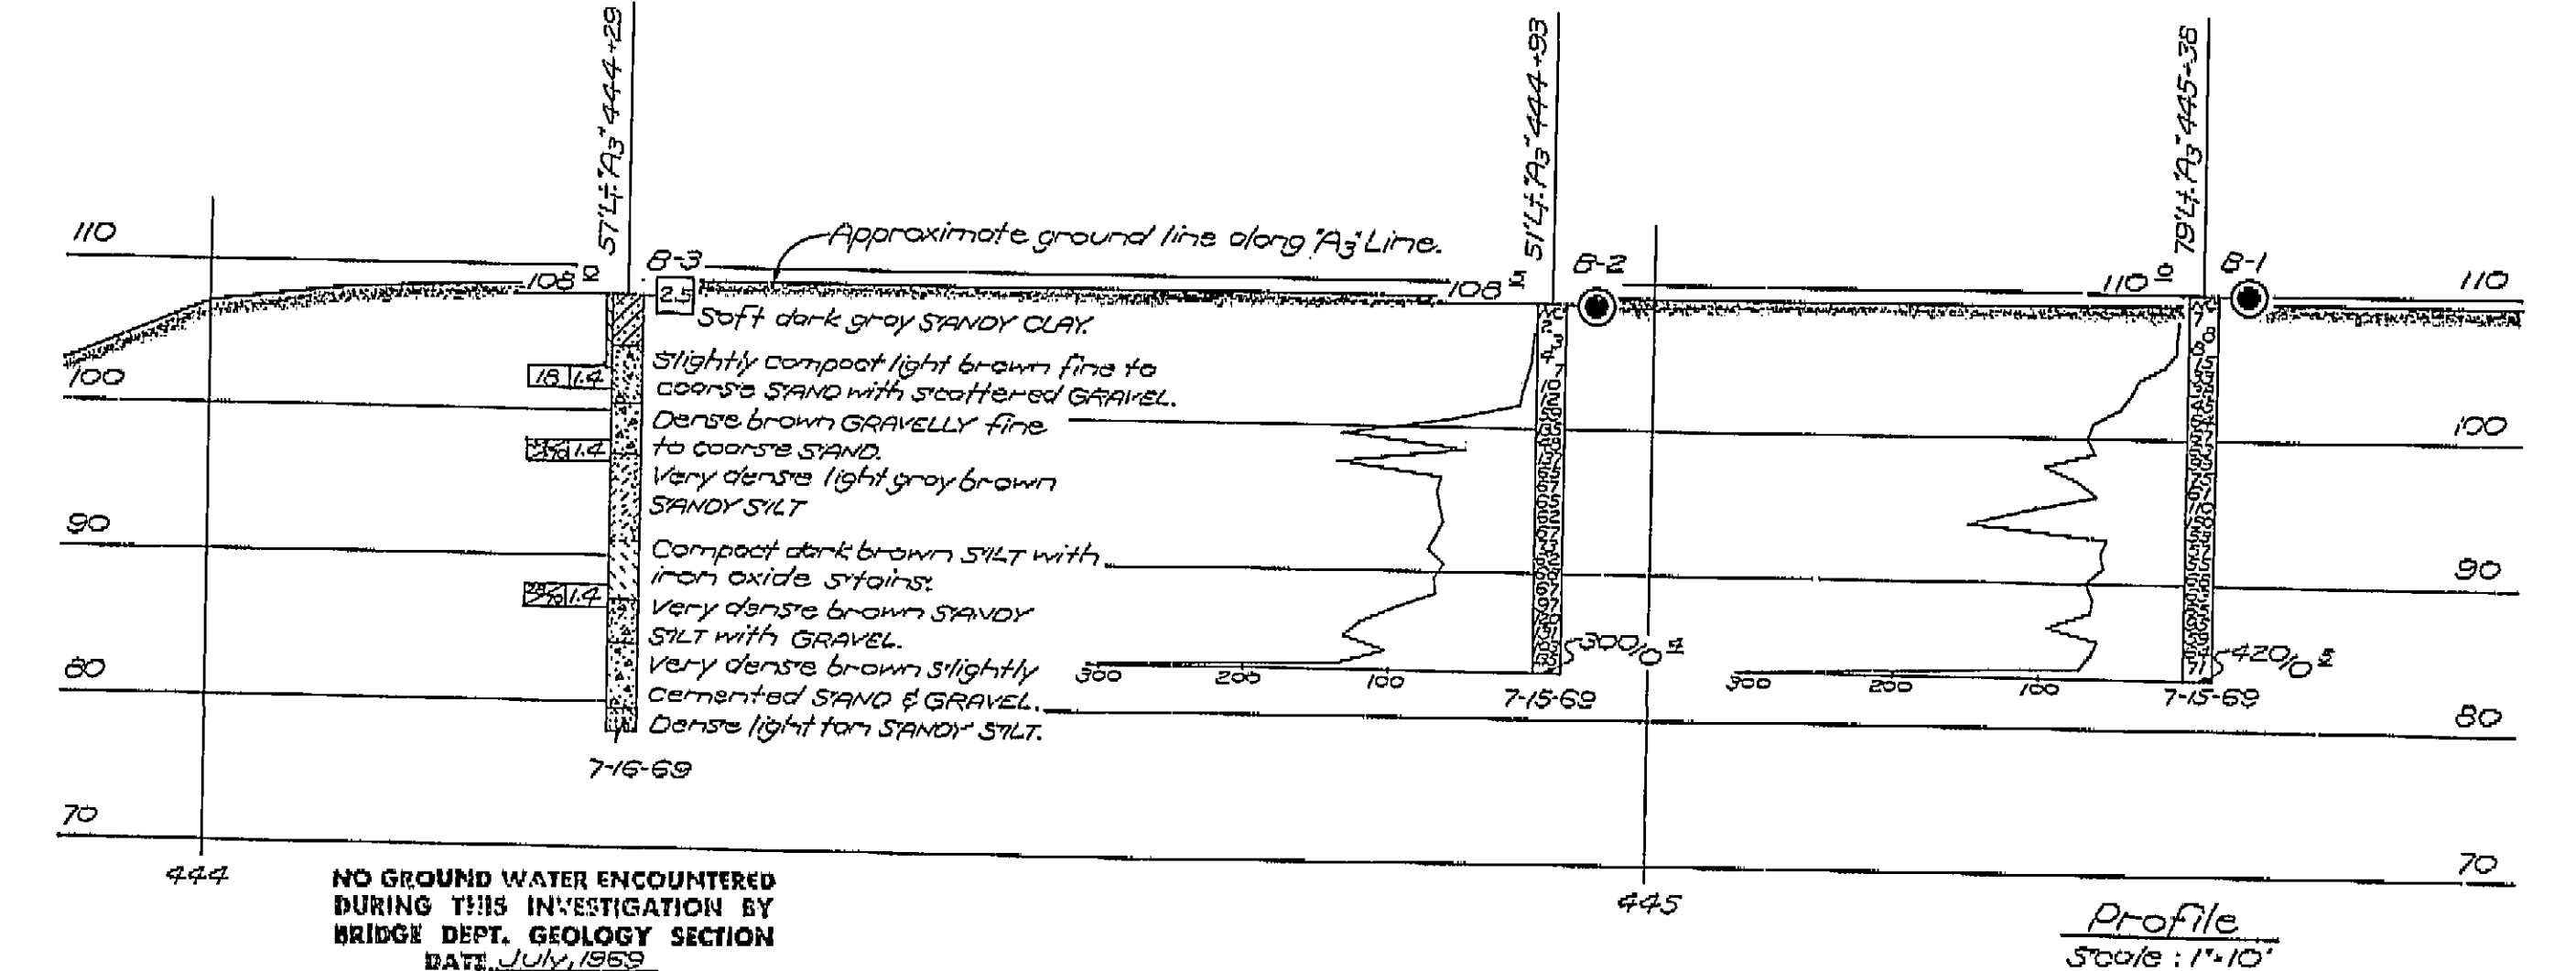 57'Lt."A3" 444+29
51'Lt."A3" 444+93
79'Lt."A3" 445+38
110
108 0
B-3
Approximate ground line along "A3" Line.
108 5
B-2
110 0
B-1
110
2.5
Soft dark gray SANDY CLAY.
Slightly compact light brown fine to
coarse SAND with scattered GRAVEL.
100
18 1.4
Dense brown GRAVELLY fine
to coarse SAND.
100
1.4
Very dense light gray brown
SANDY SILT
90
Compact dark brown SILT with
iron oxide stains.
90
1.4
Very dense brown SANDY
SILT with GRAVEL.
80
Very dense brown slightly
cemented SAND & GRAVEL.
Dense light tan SANDY SILT.
80
300 200 100
300/0 4
7-15-69
300 200 100
420/0 5
7-15-69
7-16-69
70
70
444
445
NO GROUND WATER ENCOUNTERED
DURING THIS INVESTIGATION BY
BRIDGE DEPT. GEOLOGY SECTION
DATE July, 1969
Profile
Scale: 1"=10'